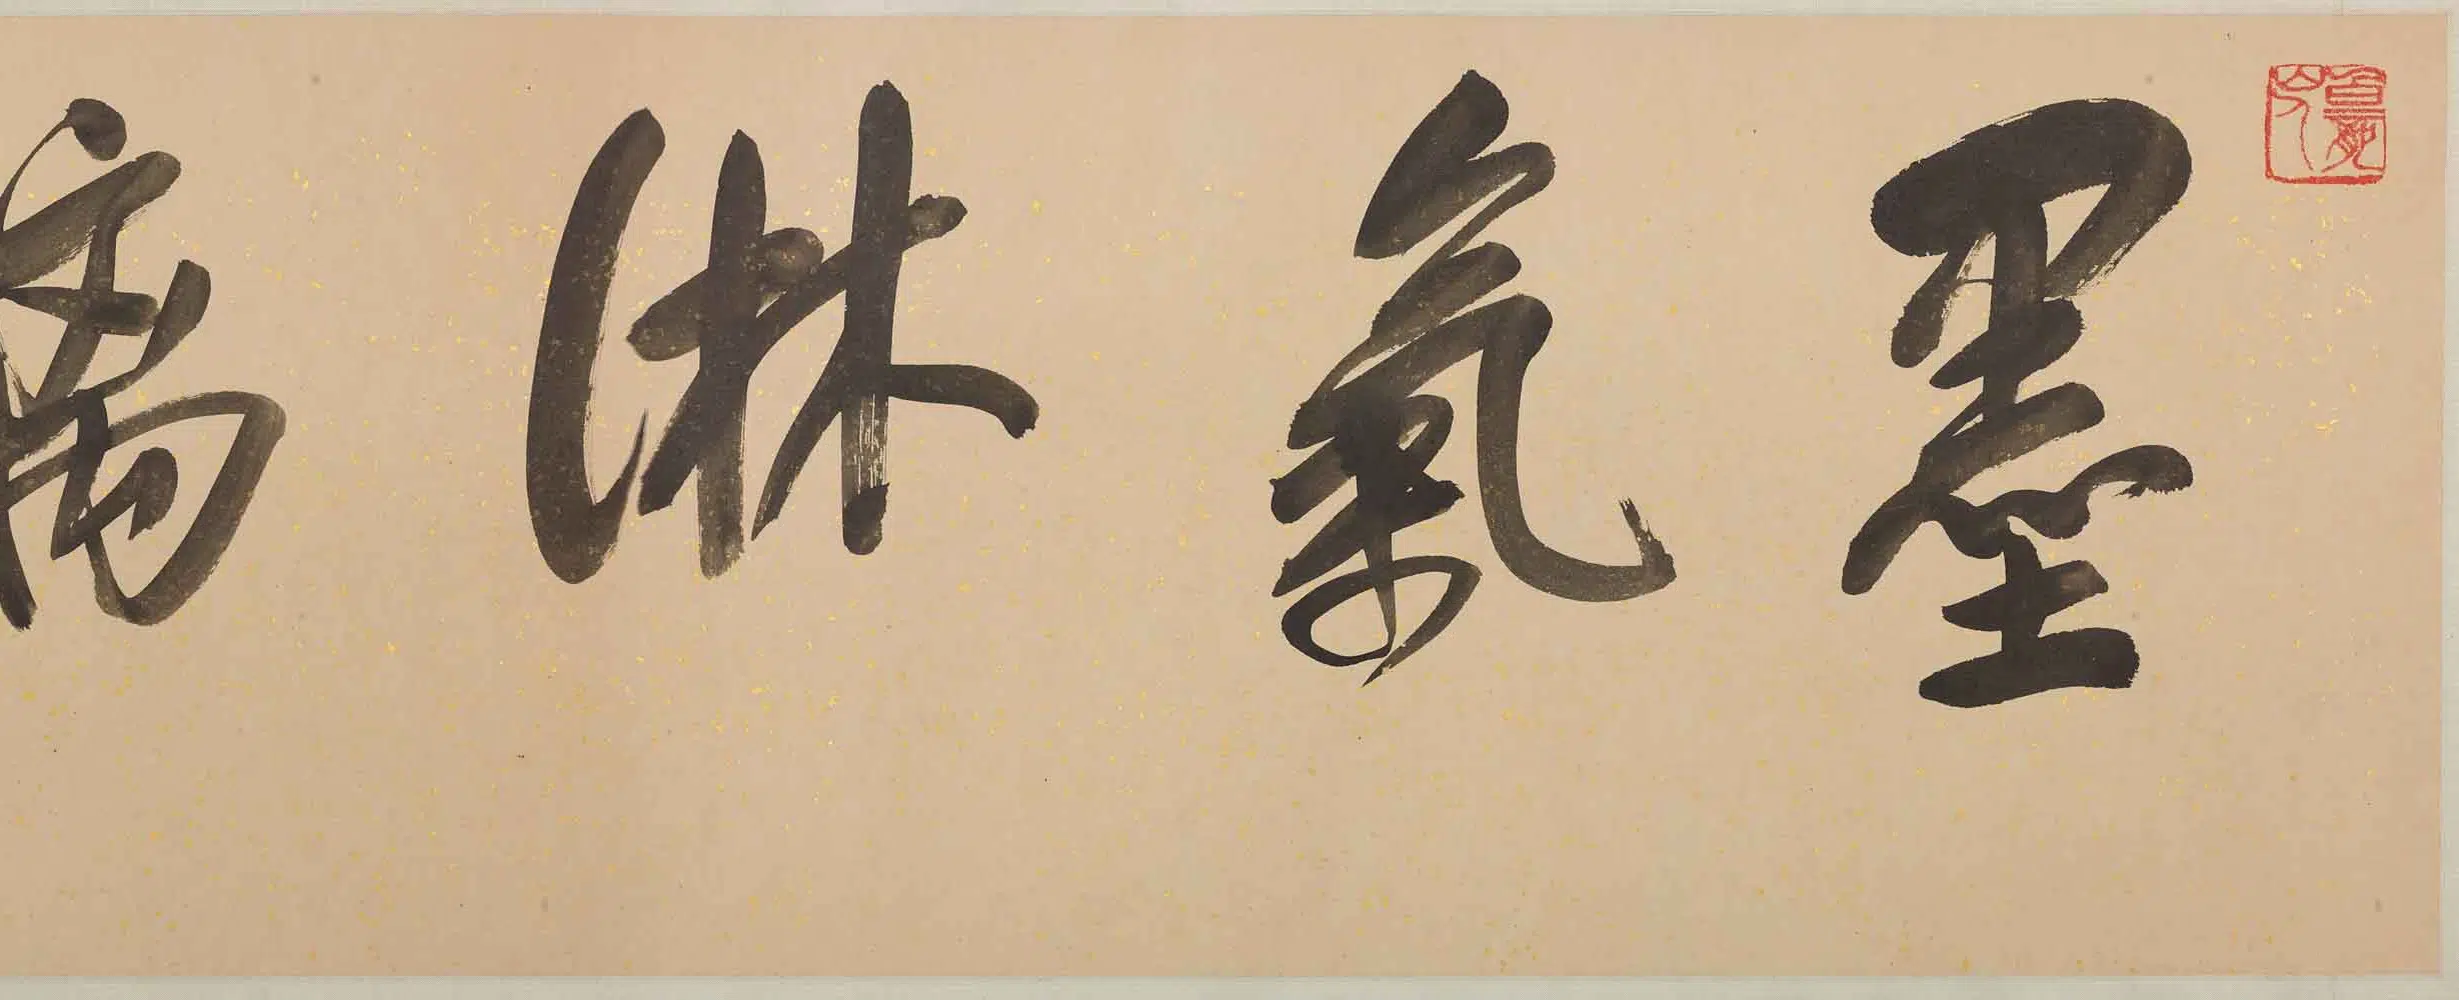 墨氣淋漓